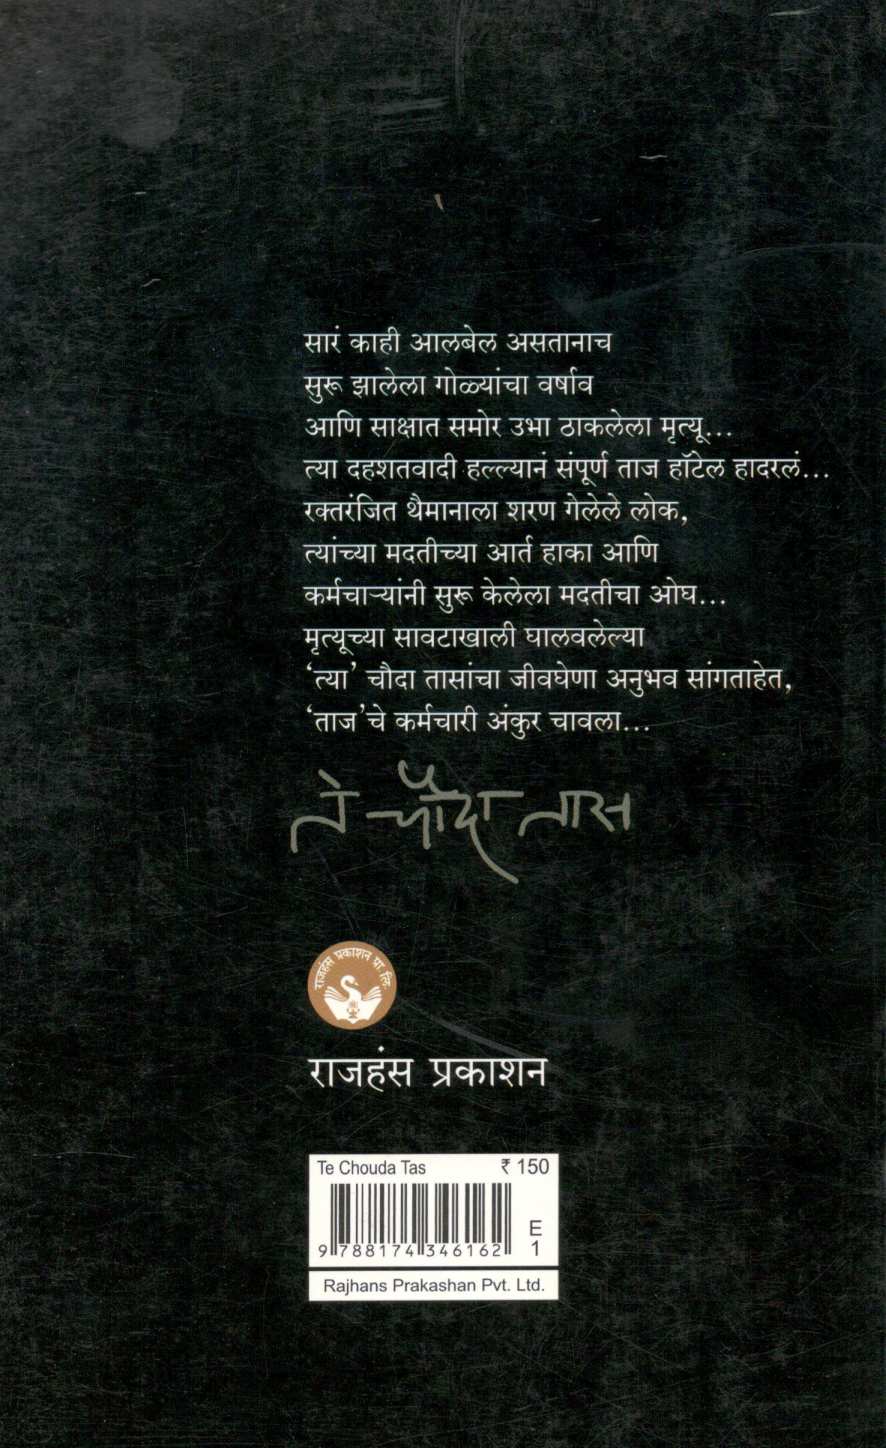 सारं काही आलबेल असतानाच
सुरू झालेला गोळ्यांचा वर्षाव
आणि साक्षात समोर उभा ठाकलेला मृत्यू...
त्या दहशतवादी हल्ल्यानं संपूर्ण ताज हॉटेल हादरलं...
रक्तरंजित थैमानाला शरण गेलेले लोक,
त्यांच्या मदतीच्या आर्त हाका आणि
कर्मचाऱ्यांनी सुरू केलेला मदतीचा ओघ...
मृत्यूच्या सावटाखाली घालवलेल्या
‘त्या’ चौदा तासांचा जीवघेणा अनुभव सांगताहेत,
‘ताज’चे कर्मचारी अंकुर चावला...
ते चौदा तास
राजहंस प्रकाशन प्रा. लि.
राजहंस प्रकाशन
Te Chouda Tas ₹ 150
9 788174 346162 E 1
Rajhans Prakashan Pvt. Ltd.